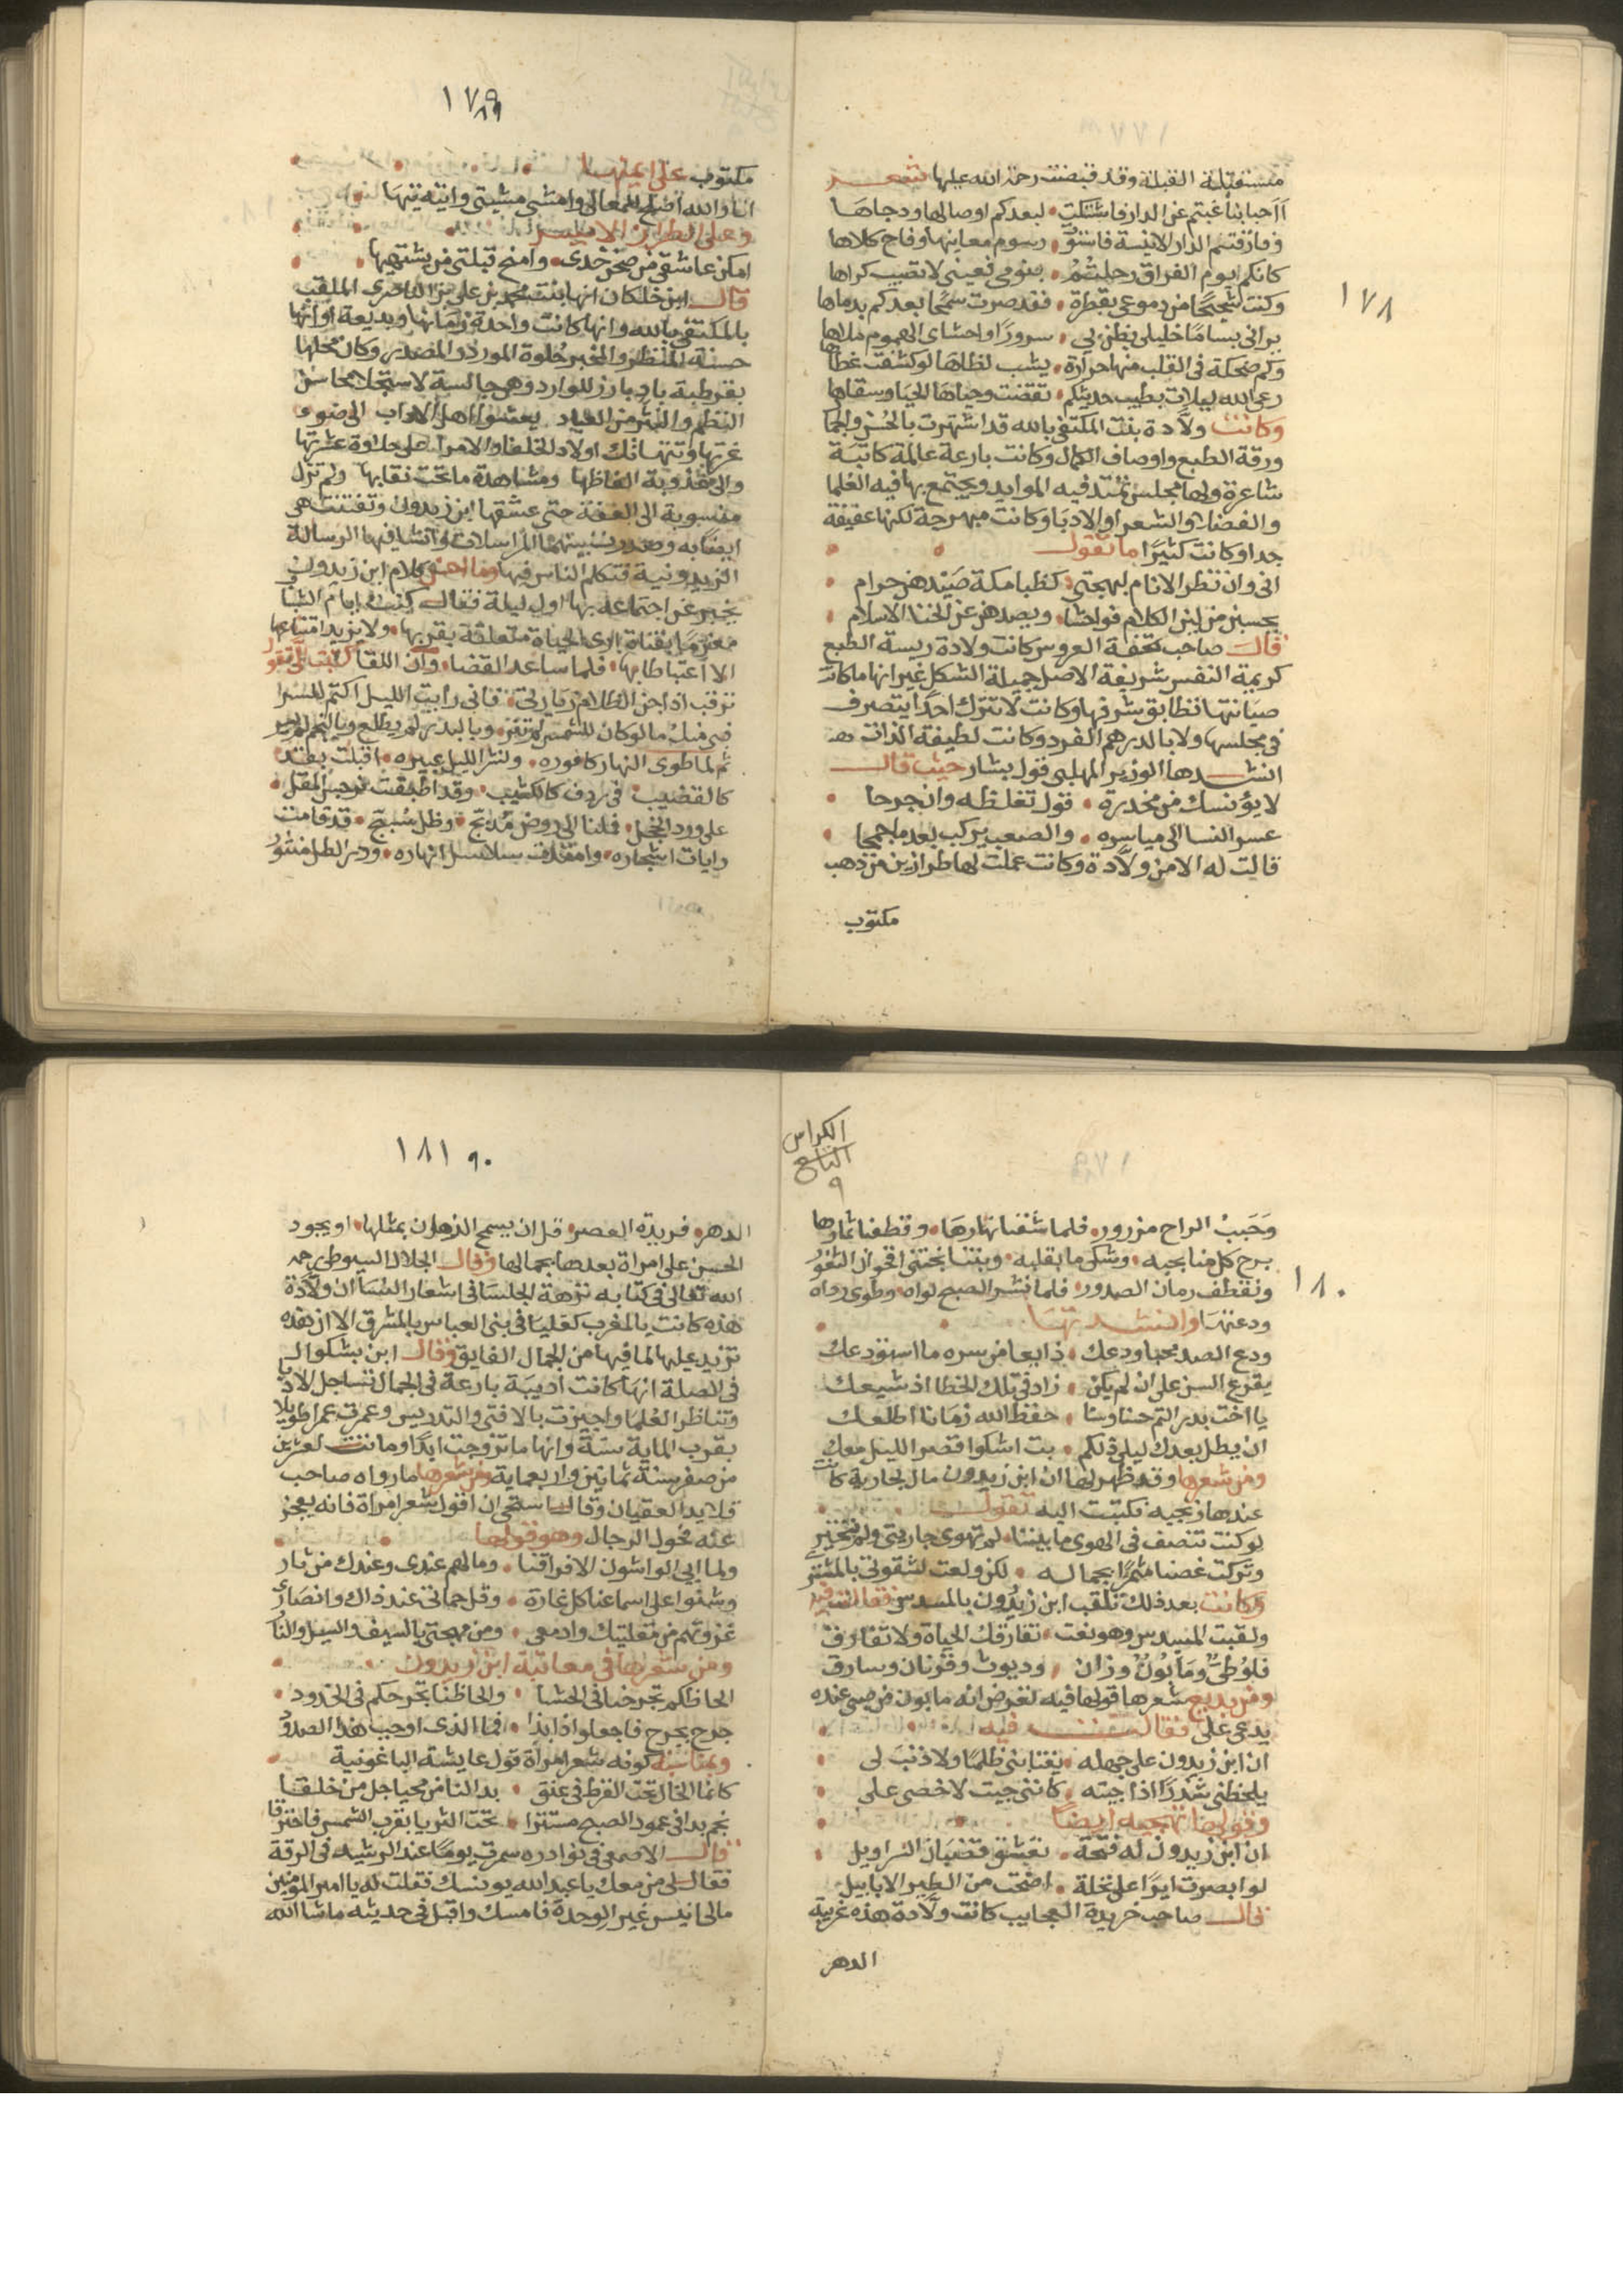 ١٧٨
مستقبلة القبلة وقد قبضت رحمة الله عليها شعر
أأحبابنا غبتم عن الدار فاشتكت • لبعدكم اوصالها ودجاها
وفارقتم الدار الانيسة فاستوت • رسوم معانيها وفاح كلاها
كانكم يوم الفراق رحلتم • بنومي فعيني لا تصيب كراها
وكنت شحيحا من دموعي بقطرة • فقد صرت سمحا بعدكم بدماها
يراني بساما خليلي يظن بي • سرورا واحشاي الهموم ملاها
وكم ضحكة في القلب منها حرارة • يشب لظاها لو كشفت غطاها
رعى الله ليلات بطيب حديثكم • تقضت وحياها الحيا وسقاها
وكانت ولادة بنت المكتفي بالله قد اشتهرت بالحسن والجما
ورقة الطبع واوصاف الكمال وكانت بارعة عالمة كاتبة
شاعرة ولها مجلس تمتد فيه الموايد ويجتمع بها فيه العلما
والفضلا والشعرا والادبا وكانت مبهرجة لكنها عفيفة
جدا وكانت كثيرا ما تقول
اني وان نظر الانام لبهجتي • كظبا مكة صيدهن حرام
يحسبن من لين الكلام فواحشا • ويصدهن عن الخنا الاسلام
قال صاحب تحفة العروس كانت ولادة ريسة الطبع
كريمة النفس شريفة الاصل جميلة الشكل غير انها ما كانت
صيانتها تطابق شرفها وكانت لا تترك احدا يتصرف
في مجلسها ولا بالدرهم الفرد وكانت لطيفة الذات
انشدها الوزير المهلبي قول بشار حيث قال
لا يؤنسك من مخدرة • قول تغلظه وان جرحا
عسر النسا الى مياسره • والصعب يركب بعد ما جمحا
قالت له الا من ولادة وكانت عملت لها طرازين من ذهب
مكتوب
١٧٩
٨٩
مكتوب على ايمنهما
انا والله اصلح للمعالي وامشي مشيتي واتيه تيها
وعلى الطراز الايسر
امكن عاشقي من صحن خدي • وامنح قبلتي من يشتهيها
قال ابن خلكان انها بنت محمد بن علي بن الناصري الملقب
بالمكتفي بالله وانها كانت واحدة زمانها وبديعة اوانها
حسنة المنظر والمخبر حلوة المورد والمصدر وكان محلها
بقرطبة بارز للوارد وهي جالسة لاستجلا محاسن
النظم والنثر من العباد يعشوا اهل الاداب الى ضوء
غرتها وتتهالك اولاد الخلفا والامرا على حلاوة عشرتها
والى عذوبة الفاظها ومشاهدة ما تحت نقابها ولم تزل
منسوبة الى العفة حتى عشقها ابن زيدون وتفتنت هي
ايضا به وصدرت بينهما المراسلات وانشا فيها الرسالة
الزيدونية فتكلم الناس فيها وما احسن كلام ابن زيدون
يخبر عن اجتماعه بها اول ليلة فقال كنت في ايام الشبا
مغرما بفتاة ارى الحياة متعلقة بقربها • ولا يزيد امتناعها
الا اغتباطا بها • فلما ساعد القضا • وآن اللقا كتبت الي تقول
ترقب اذا جن الظلام زيارتي • فاني رايت الليل اكتم للسر
فبي منك ما لو كان للشمس لم تنر • وبالبدر لم يطلع وبالنجم لم يسر
ثم لما طوى النهار كافوره • ونشر الليل عبيره • اقبلت بقد
كالقضيب • في ردف كالكثيب • وقد اطبقت نرجس المقل •
على ورد الخجل • فملنا الى روض مدبج • وظل سبسج • قد قامت
رايات اشجاره • وامتدت سلاسل انهاره • ودر الطل منثور
الكراس
التاسع
٩
١٨٠
وحبب الراح مزرور • فلما شفنا نهارها • وقطفنا ثمارها
برح كل منا بحبه • وشكى ما بقلبه • وبتنا نجتني اقحوان الثغور
ونقطف رمان الصدور • فلما نشر الصبح لواه • وطوى رداه
ودعتها وانشدتها
ودع الصبر محب ودعك • ذايعا من سره ما استودعك
يقرع السن على ان لم يكن • زاد في تلك الخطا اذ شيعك
يا اخت بدر التم حسنا وسنا • حفظ الله زمانا اطلعك
ان يطل بعدك ليلي فلكم • بت اشكوا قصر الليل معك
ومن شعرها وقد ظهر لها ان ابن زيدون مال لجارية كانت
عندها زنجيه فكتبت اليه تقول
لو كنت تنصف في الهوى ما بيننا • لم تهوى جاريتي ولم تتخير
وتركت غصنا مثمرا بجماله • لكن ولعت لشقوتي بالمشتري
وكانت بعد ذلك تلقب ابن زيدون بالمسدس فقالت فيه
ولقبت المسدس وهو نعت • تفارقك الحياة ولا تفارق
فلوطي ومأبون وزان • وديوث وقرنان وسارق
ومن بديع شعرها قولها فيه لغرض انه مابون من صبي عنده
يدعى علي فقالت فيه
ان ابن زيدون على جهله • يغتابني ظلما ولا ذنب لي
يلحظني شذرا اذا جيته • كانني جيت لاخصي علي
وقولها تهجيه ايضا
ان ابن زيدون له فقحة • تعشق قضبان السراويل
لو ابصرت ايرا على نخلة • اضحت من الطير الابابيل
قال صاحب خريدة العجايب كانت ولادة هذه غريبة
الدهر
١٨١ ٩٠
الدهر • فريدة العصر • قل ان يسمح الزمان بمثلها • او يجود
الحسن على امراة بعدها بجمالها وقال الجلال السيوطي رحمه
الله تعالى في كتابه نزهة الجلسا في اشعار النسا ان ولادة
هذه كانت بالمغرب كعليا في بني العباس بالمشرق الا ان هذه
تزيد عليها لما فيها من الجمال الفايق وقال ابن بشكوال
في الصلة انها كانت اديبة بارعة في الجمال تساجل الادبا
وتناظر العلما واجيزت بالافتي والتدريس وعمرت عمرا طويلا
بقرب الماية سنة وانها ما تزوجت ابدا وماتت لعشرين
من صفر سنة ثمانين واربعماية ومن شعرها ما رواه صاحب
قلايد العقيان وقال استحي ان اقول شعر امراة فانه يعجز
عنه فحول الرجال وهو قولها
ولما ابى الواشون الا فراقنا • وما لهم عندي وعندك من ثار
وشنوا على اسماعنا كل غارة • وقل حماتي عند ذاك وانصاري
غزوتهم من مقلتيك وادمعي • ومن مهجتي بالسيف والسيل والنار
ومن شعرها في معاتبة ابن زيدون
الحاظكم تجرحنا في الحشا • والحاظنا تجرحكم في الخدود •
جرح بجرح فاجعلوا ذا بذا • فما الذي اوجب هذا الصدود
وبمناسبة كونه شعر امرأة قول عايشة الباعونية
كانما الخال تحت القرط في عنق • بدا لنا من محيا جل من خلقا
نجم بدا في عمود الصبح مستترا • تحت الثريا بقرب الشمس فاحترقا
قال الاصمعي في نوادره سمرت يوما عند الرشيد في الرقة
فقال لي من معك يا عبد الله يونسك فقلت له يا امير المؤمنين
مالي انيس غير الوحدة فامسك واقبل في حديثه ما شا الله